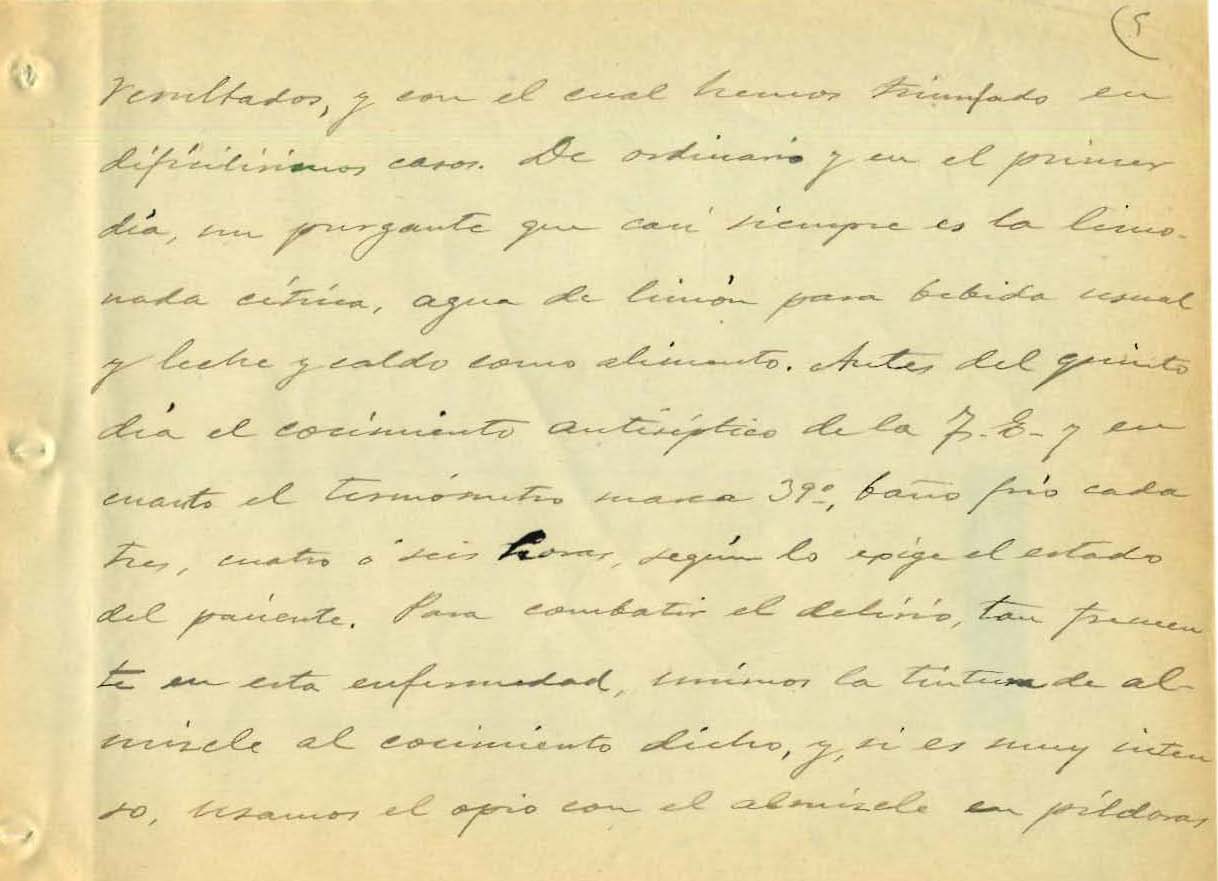 5
resultados, y con el cual hemos triunfado en
dificilísimos casos. De ordinario y en el primer
día, un purgante que casi siempre es la limo-
nada cítrica, agua de limón para bebida usual
y leche y caldo como alimento. Antes del quinto
día el cocimiento antiséptico de la F. E. y en
cuanto el termómetro marca 39º, baño frío cada
tres, cuatro ó seis horas, según lo exige el estado
del paciente. Para combatir el delirio, tan frecuen
te en esta enfermedad, unimos la tintura de al-
mizcle al cocimiento dicho, y, si es muy inten
so, usamos el opio con el almizcle en píldoras